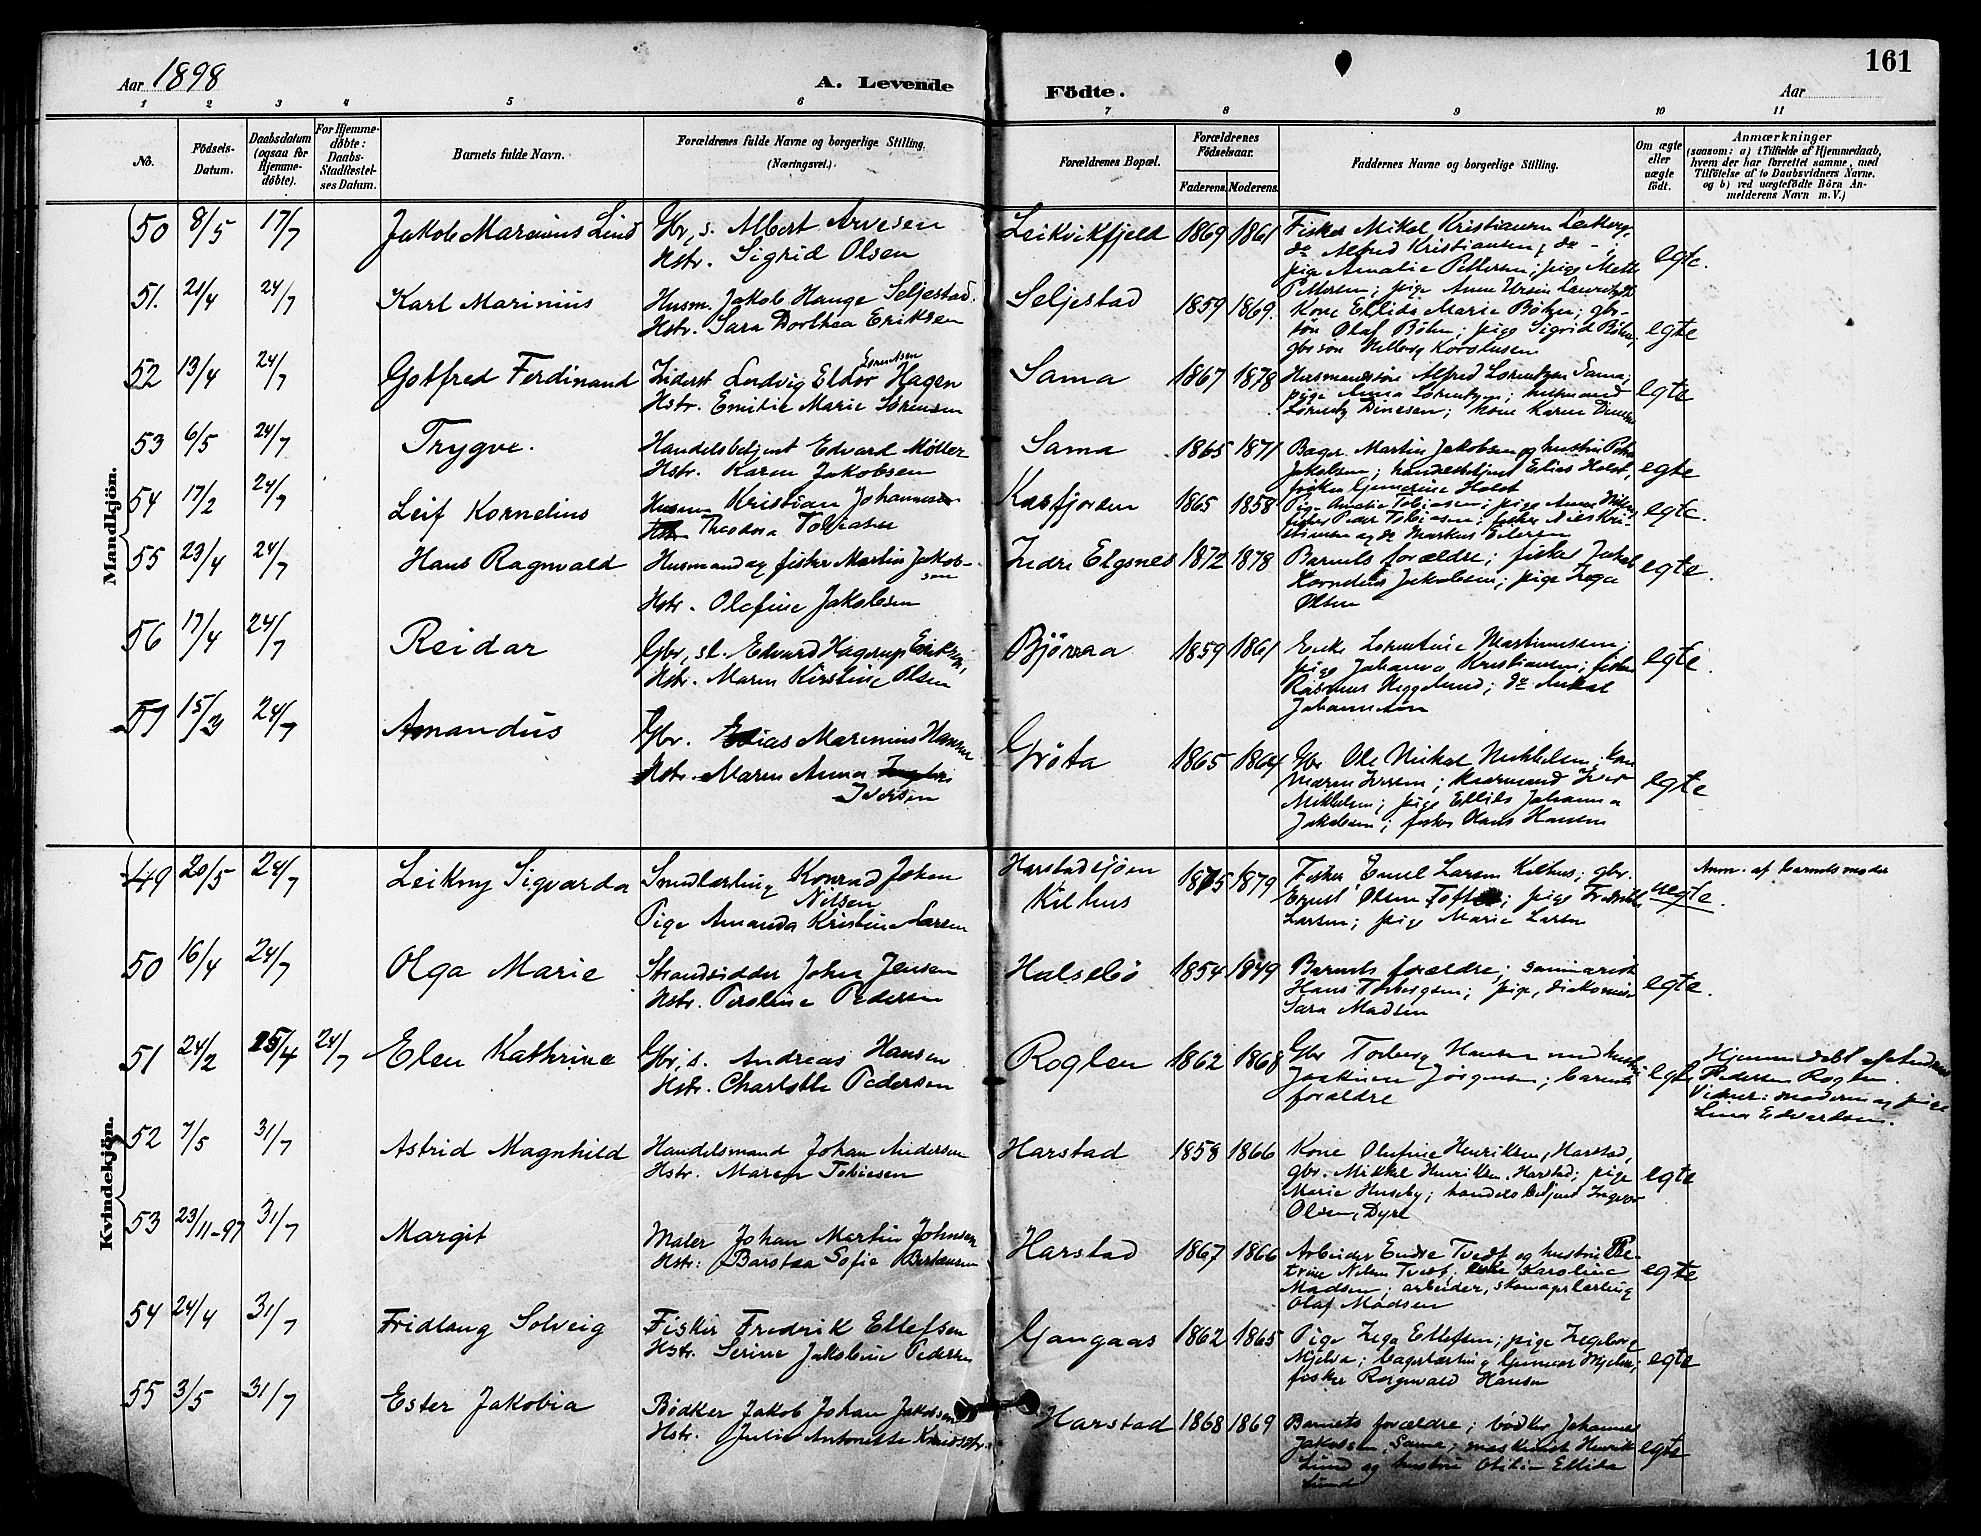 Aar 1898
A. Levende Födte.
Aar
161
1 2 3 4 5 6 7 8 9 10 11
No.
Födsels-Datum.
Daabsdatum (ogsaa for Hjemme-döbte).
For Hjemme-döbte: Daabs-Stadfæstel-ses Datum.
Barnets fulde Navn.
Forældrenes fulde Navne og borgerlige Stilling. (Næringsvei.)
Forældrenes Bopæl.
Forældrenes Födselsaar.
Faderens. Moderens.
Faddernes Navne og borgerlige Stilling.
Om ægte eller uægte födt.
Anmærkninger
(saasom: a) i Tilfælde af Hjemmedaab,
hvem der har forrettet samme, med
Tilföielse af to Daabsvidners Navne.
og b) ved uægtefödte Börn An-
melderens Navn m.V.)
Mandkjön.
50 8/5 17/7 Jakob Marinius Lind Gbr, s. Albert Arvesen Leikvikfjeld 1869 1861 Fisker Mikal Kristiansen
Hstr. Sigrid Olsen do Alfred Kristiansen; do egte.
pige Amalie Pettersen; pige Mette
Pettersen; pige Anne
51. 21/4 24/7 Karl Marinius Husm. Jakob Hauge Seljestad. Seljestad 1859 1869. Kone Ellida Marie Böhn; gbr-
Hstr. Sara Dorthea Eriksen sön Olaf Böhn; pige Sigrid Böhn; egte
gbr sön
52 13/4 24/7 Gotfred Ferdinand Inderst Ludvig Eldor Hagen Sama 1867 1878 Husmandssön Alfred Lorentzen Sama;
Hstr. Emilie Marie Sörensen pige Anna Lorentzen; husmand egte
Lorentz Dinesen; kone Karen
53 6/5 24/7 Trygve. Handelsbetjent Edvard Möller Sama 1865 1871 Bager Martin Jakobsen og hustru
Hstr. Karen Jakobsen Jakobsen; handelsbetjent Elias Holst, egte
Holst
54 17/2 24/7 Leif Kornelius Husm Kristian Johannesen Kasfjorden 1865 1858 Pige Amalie Tobiasen; pige Anna
Hstr Theodora Tobiasen fisker Peder Tobiasen; fisker Nils Kri- egte.
stiansen og do Markus
55 23/4 24/7 Hans Ragnvald Husmand og fisker Martin Jakob- Indre Elgsnes 1872 1878 Barnets forældre; fisker Jakob
sen Kornelius Jakobsen; pige Inga egte.
Hstr. Olefine Jakobsen Olsen
56 17/4 24/7 Reidar Gbr, sl. Edvard Hagerup Eriksen, Björaa 1859 1861 Enke Lorentine Martinussen;
Hstr. Maren Kirstine Olsen pige Johanna Kristiansen; fisker egte.
Rasmus Heggelund; do Mikal
Johannesen
57 15/3 24/7 Amandus Gbr. Elias Marinius Hansen Gröta 1865 1864 Gbr Ole Mikal Mikkelsen, kone
Hstr. Maren Anna Maren Iversen; husmand Iver egte
Iversen Mikkelsen; pige Ellits Johanna
Jakobsen; fisker Hans Hansen
Kvindekjön.
49 20/5 24/7 Leikny Sigvarda Smedlærling Konrad Johan Harstadsjöen 1875 1879 Fisker Emil Larsen Kilhus; gbr. Anm. af barnets moder
Nilsen Kilhus Ernst Olsen; pige uegte.
Pige Amanda Kristine Larsen Larsen; pige Marie Larsen
50 16/4 24/7 Olga Marie Strandsidder John Jensen Halsebö 1854 1849 Barnets forældre; seminarist
Hstr. Peroline Pedersen Hans Torbergsen; pige, diakonisse egte.
Sara Madsen
51 24/2 25/4 24/7 Elen Kathrine Gbr, s. Andreas Hansen Roglen 1862 1868 Gbr Torberg Hansen med hustru Hjemmedöbt af Andreas
Hstr. Charlotte Pedersen Joakime Jörgensen; barnets egte Pedersen Roglen.
forældre Vidner: moderen og pige
Lina Edvardsen.
52 7/5 31/7 Astrid Magnhild Handelsmand Johan Andersen Harstad 1858 1866 Kone Olufine Henriksen, Harstad,
Hstr. Maren Tobiesen gbr. Mikkel Henriksen, Harstad; pige egte
Marie Huseby; handelsbetjent Ingvar
Olsen, Dyrö
53 23/11-97 31/7 Margit Maler Johan Martin Johnsen Harstad 1867 1866 Arbeider Endre Tvedt og hustru Pe-
Hstr: Barstaa Sofie Berntsen trine Nilsen Tvedt, enke Karoline egte
Madsen; arbeider, skomagerlærling
Olaf Madsen
54 24/4 31/7 Fridlaug Solveig Fisker Fredrik Ellefsen Gangaas 1862 1865 Pige Inga Ellefsen; pige Ingeborg
Hstr. Serine Jakobine Pedersen Mjelva; bagerlærling Gunvar Mjelva; egte
fisker Ragnvald Hansen
55 3/5 31/7 Ester Jakobia Bödker Jakob Johan Jakobsen Harstad 1868 1869 Barnets forældre; bödker Johannes
Hstr. Julie Antonette Knudsen Jakobsen, Sama; maskinist Henrik egte
Lund og hustru Otilie Ellida
Lund